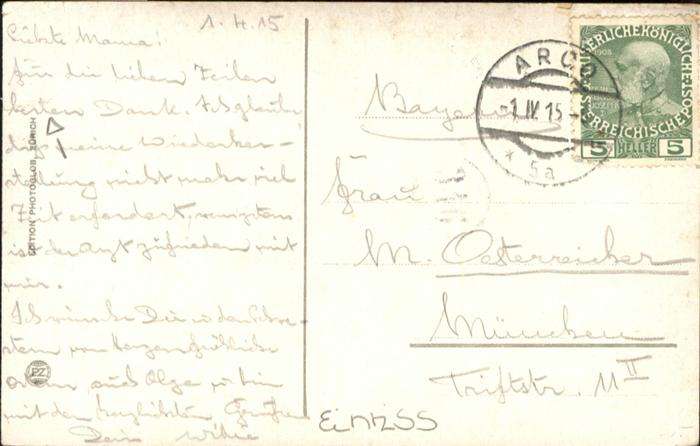 1.4.15
Liebste Mama!
für die lieben Zeilen
besten Dank. Ich glaube,
dass meine Wiederher-
stellung nicht mehr viel
Zeit erfordert, wenigstens
ist der Arzt zufrieden mit
mir.
Ich wünsche Dir u den Schwe-
stern von Herzen fröhliche
Ostern auch Olga u bin
mit den herzlichsten Grüßen
Dein
EDITION PHOTOGLOB ZÜRICH
PZ
ARCO
-1.IV.15
* 5a
KAISERLICHE KÖNIGLICHE
ÖSTERREICHISCHE POST
1908
5 HELLER 5
Bayern
Frau
M. Oesterreicher
München
Triftstr. 11 II